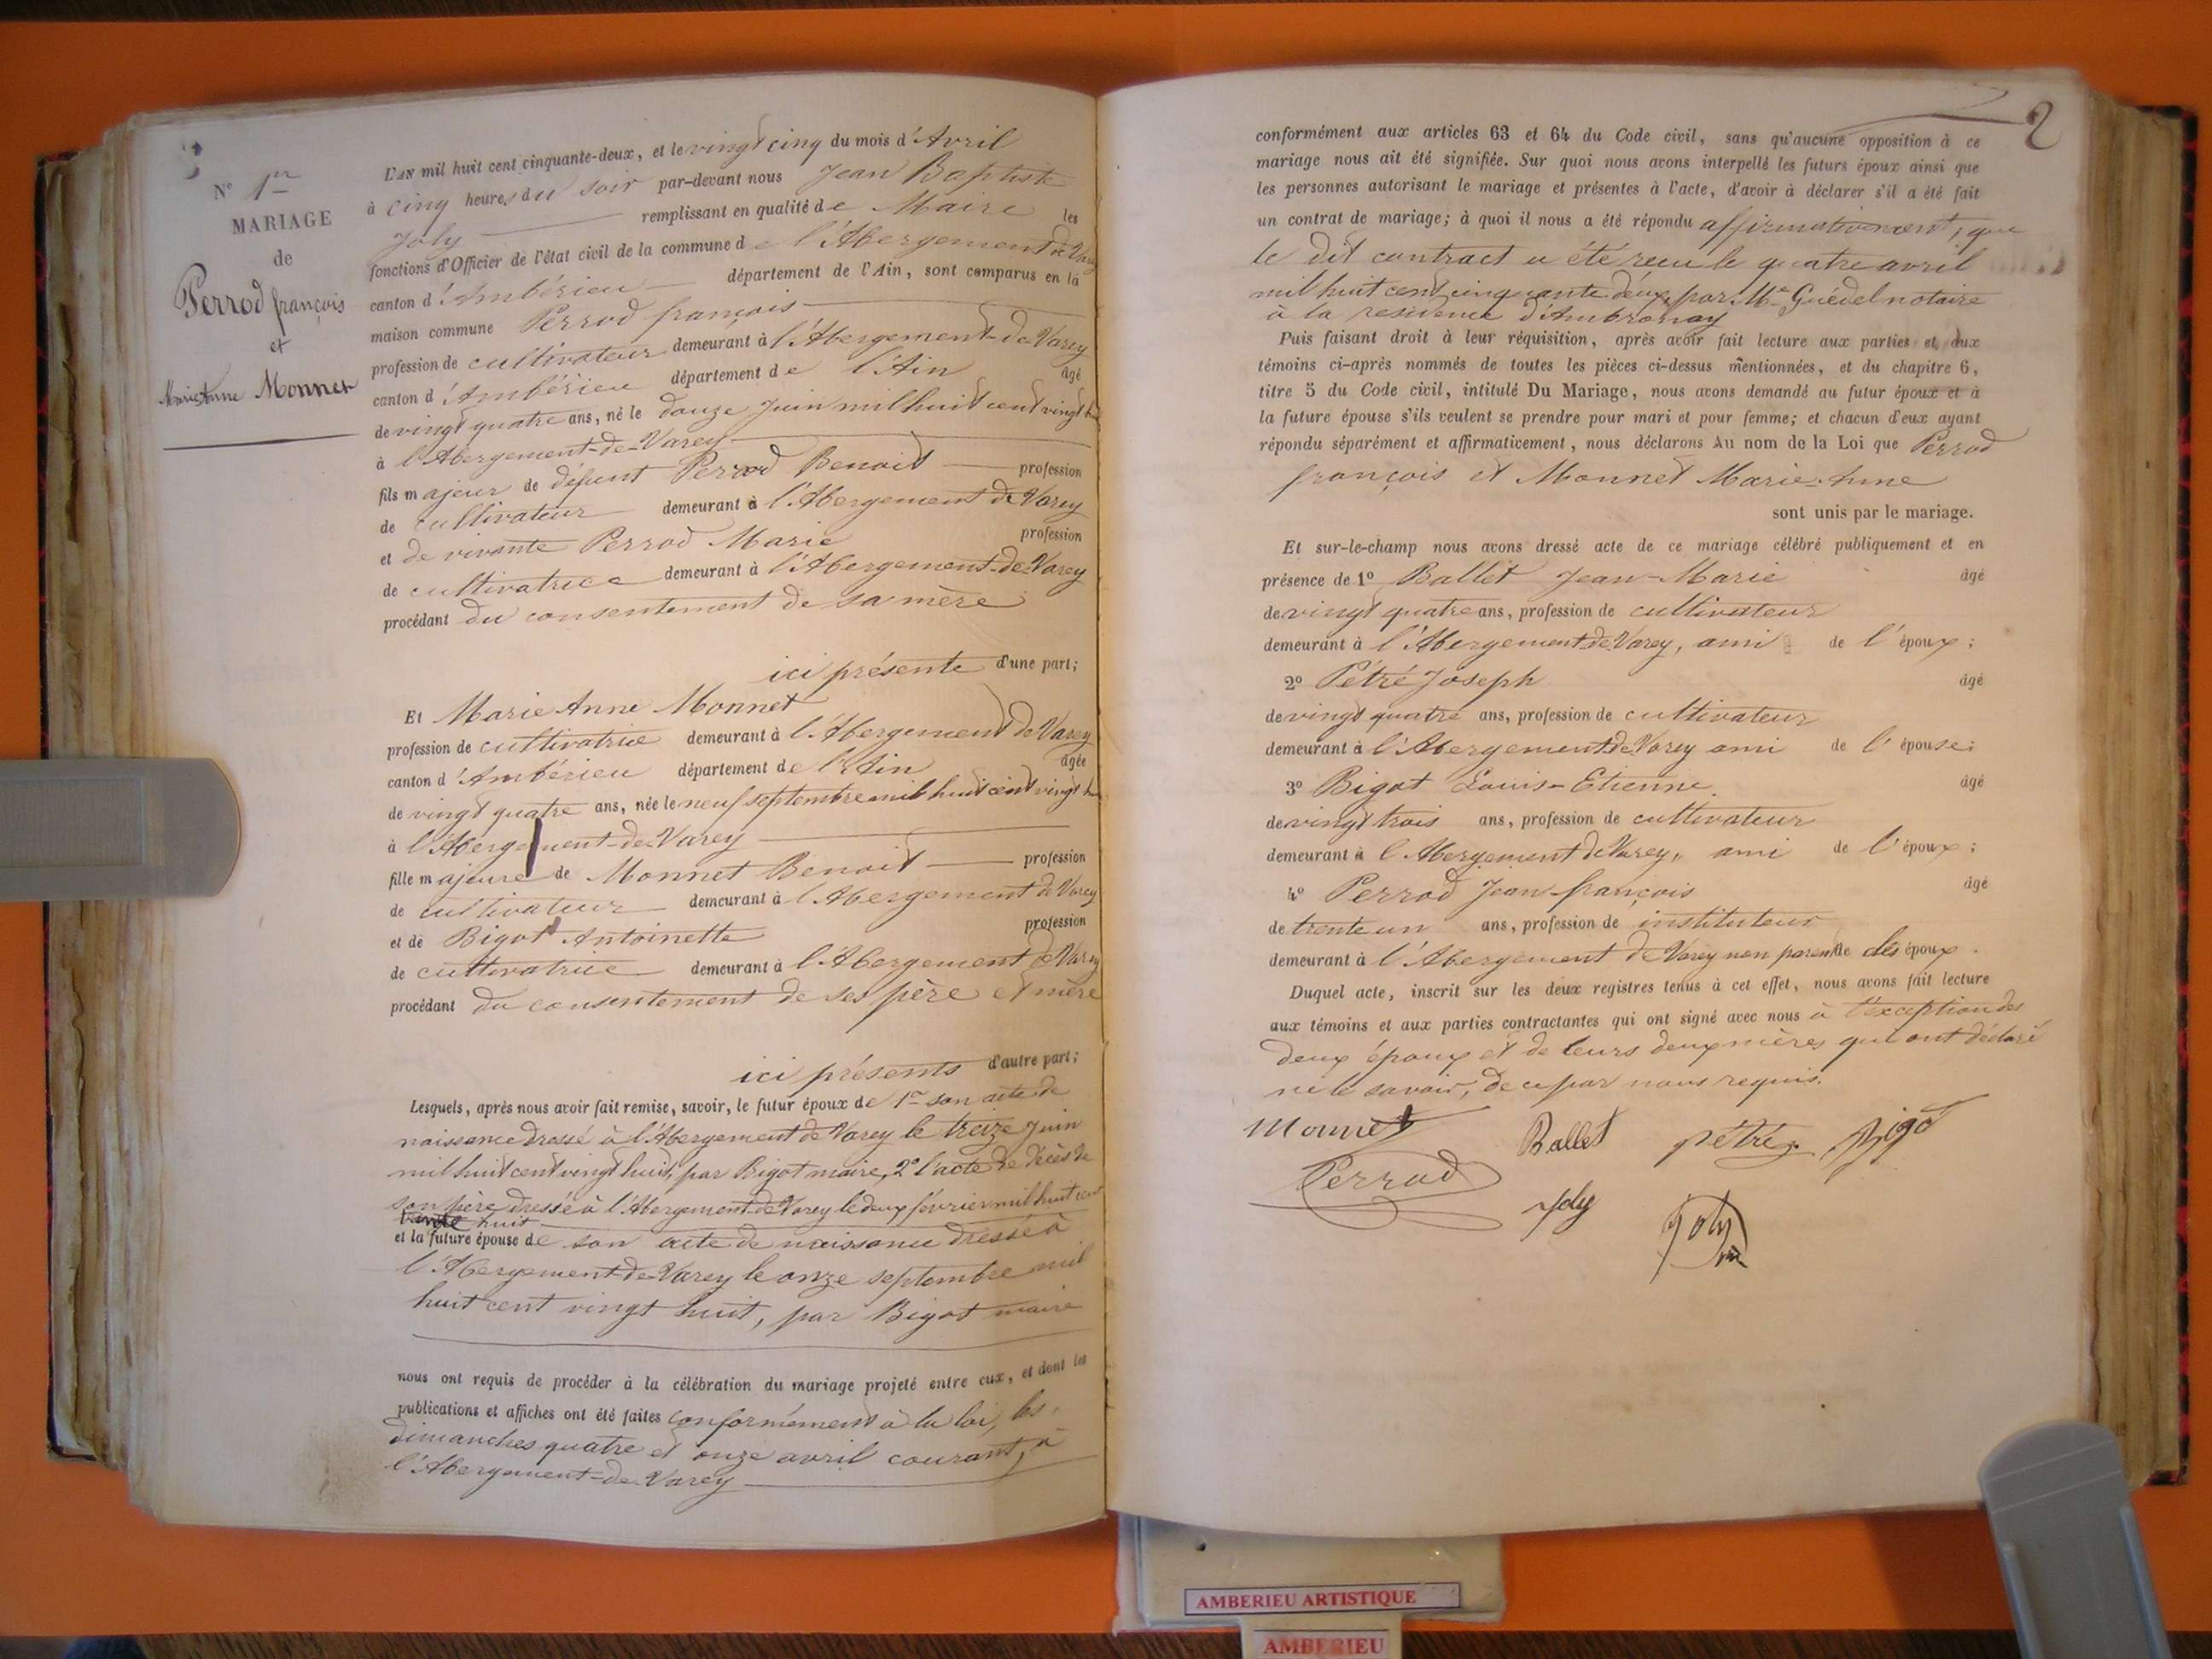 N° 1er
MARIAGE
de
Perrod françois
et
Marie Anne Monnet
L'AN mil huit cent cinquante-deux, et le vingt cinq du mois d'Avril
à cinq heures du soir par-devant nous Jean Baptiste
Joly remplissant en qualité de Maire les
fonctions d'Officier de l'état civil de la commune de l'Abergement de Varey
canton d'Ambérieu département de l'Ain, sont comparus en la
maison commune Perrod françois
profession de cultivateur demeurant à l'Abergement-de-Varey
canton d'Ambérieu département de l'Ain âgé
de vingt quatre ans, né le douze Juin mil huit cent vingt huit
à l'Abergement-de-Varey
fils majeur de défunt Perrod Benoit profession
de cultivateur demeurant à l'Abergement de Varey
et de vivante Perrod Marie profession
de cultivatrice demeurant à l'Abergement-de-Varey
procédant du consentement de sa mère
ici présente d'une part;
Et Marie Anne Monnet
profession de cultivatrice demeurant à l'Abergement de Varey
canton d'Ambérieu département de l'Ain âgée
de vingt quatre ans, née le neuf septembre mil huit cent vingt huit
à l'Abergement-de-Varey
fille majeure de Monnet Benoit profession
de cultivateur demeurant à l'Abergement de Varey
et de Bigot Antoinette profession
de cultivatrice demeurant à l'Abergement de Varey
procédant du consentement de ses père et mère
ici présents d'autre part;
Lesquels, après nous avoir fait remise, savoir, le futur époux de 1° son acte de
naissance dressé à l'Abergement de Varey le treize Juin
mil huit cent vingt huit, par Bigot maire, 2° l'acte de décès de
son père dressé à l'Abergement de Varey le deux février mil huit cent
huit
et la future épouse de son acte de naissance dressé à
l'Abergement-de-Varey le onze septembre mil
huit cent vingt huit, par Bigot maire
nous ont requis de procéder à la célébration du mariage projeté entre eux, et dont les
publications et affiches ont été faites conformément à la loi, les
dimanches quatre et onze avril courant, à
l'Abergement-de-Varey
2
conformément aux articles 63 et 64 du Code civil, sans qu'aucune opposition à ce
mariage nous ait été signifiée. Sur quoi nous avons interpellé les futurs époux ainsi que
les personnes autorisant le mariage et présentes à l'acte, d'avoir à déclarer s'il a été fait
un contrat de mariage; à quoi il nous a été répondu affirmativement, que
le dit contract a été recu le quatre avril
mil huit cent cinquante deux, par Me Guédel notaire
à la residence d'Ambronay
Puis faisant droit à leur réquisition, après avoir fait lecture aux parties et aux
témoins ci-après nommés de toutes les pièces ci-dessus mentionnées, et du chapitre 6,
titre 5 du Code civil, intitulé Du Mariage, nous avons demandé au futur époux et à
la future épouse s'ils veulent se prendre pour mari et pour femme; et chacun d'eux ayant
répondu séparément et affirmativement, nous déclarons Au nom de la Loi que Perrod
françois et Monnet Marie-Anne
sont unis par le mariage.
Et sur-le-champ nous avons dressé acte de ce mariage célébré publiquement et en
présence de 1° Ballet Jean-Marie âgé
de vingt quatre ans, profession de cultivateur
demeurant à l'Abergement de Varey, ami de l'époux;
2° Pétré Joseph âgé
de vingt quatre ans, profession de cultivateur
demeurant à l'Abergement de Varey ami de l'épouse;
3° Bigot Louis-Etienne âgé
de vingt trois ans, profession de cultivateur
demeurant à l'Abergement de Varey, ami de l'époux;
4° Perrod Jean-françois âgé
de trente un ans, profession de instituteur
demeurant à l'Abergement de Varey non parent de des époux.
Duquel acte, inscrit sur les deux registres tenus à cet effet, nous avons fait lecture
aux témoins et aux parties contractantes qui ont signé avec nous à l'exception des
deux époux et de leurs deux mères qui ont déclaré
ne le savoir, de ce par nous requis.
Monnet Ballet pétré j. Bigot
Perrod Joly Joly
AMBERIEU ARTISTIQUE
AMBERIEU